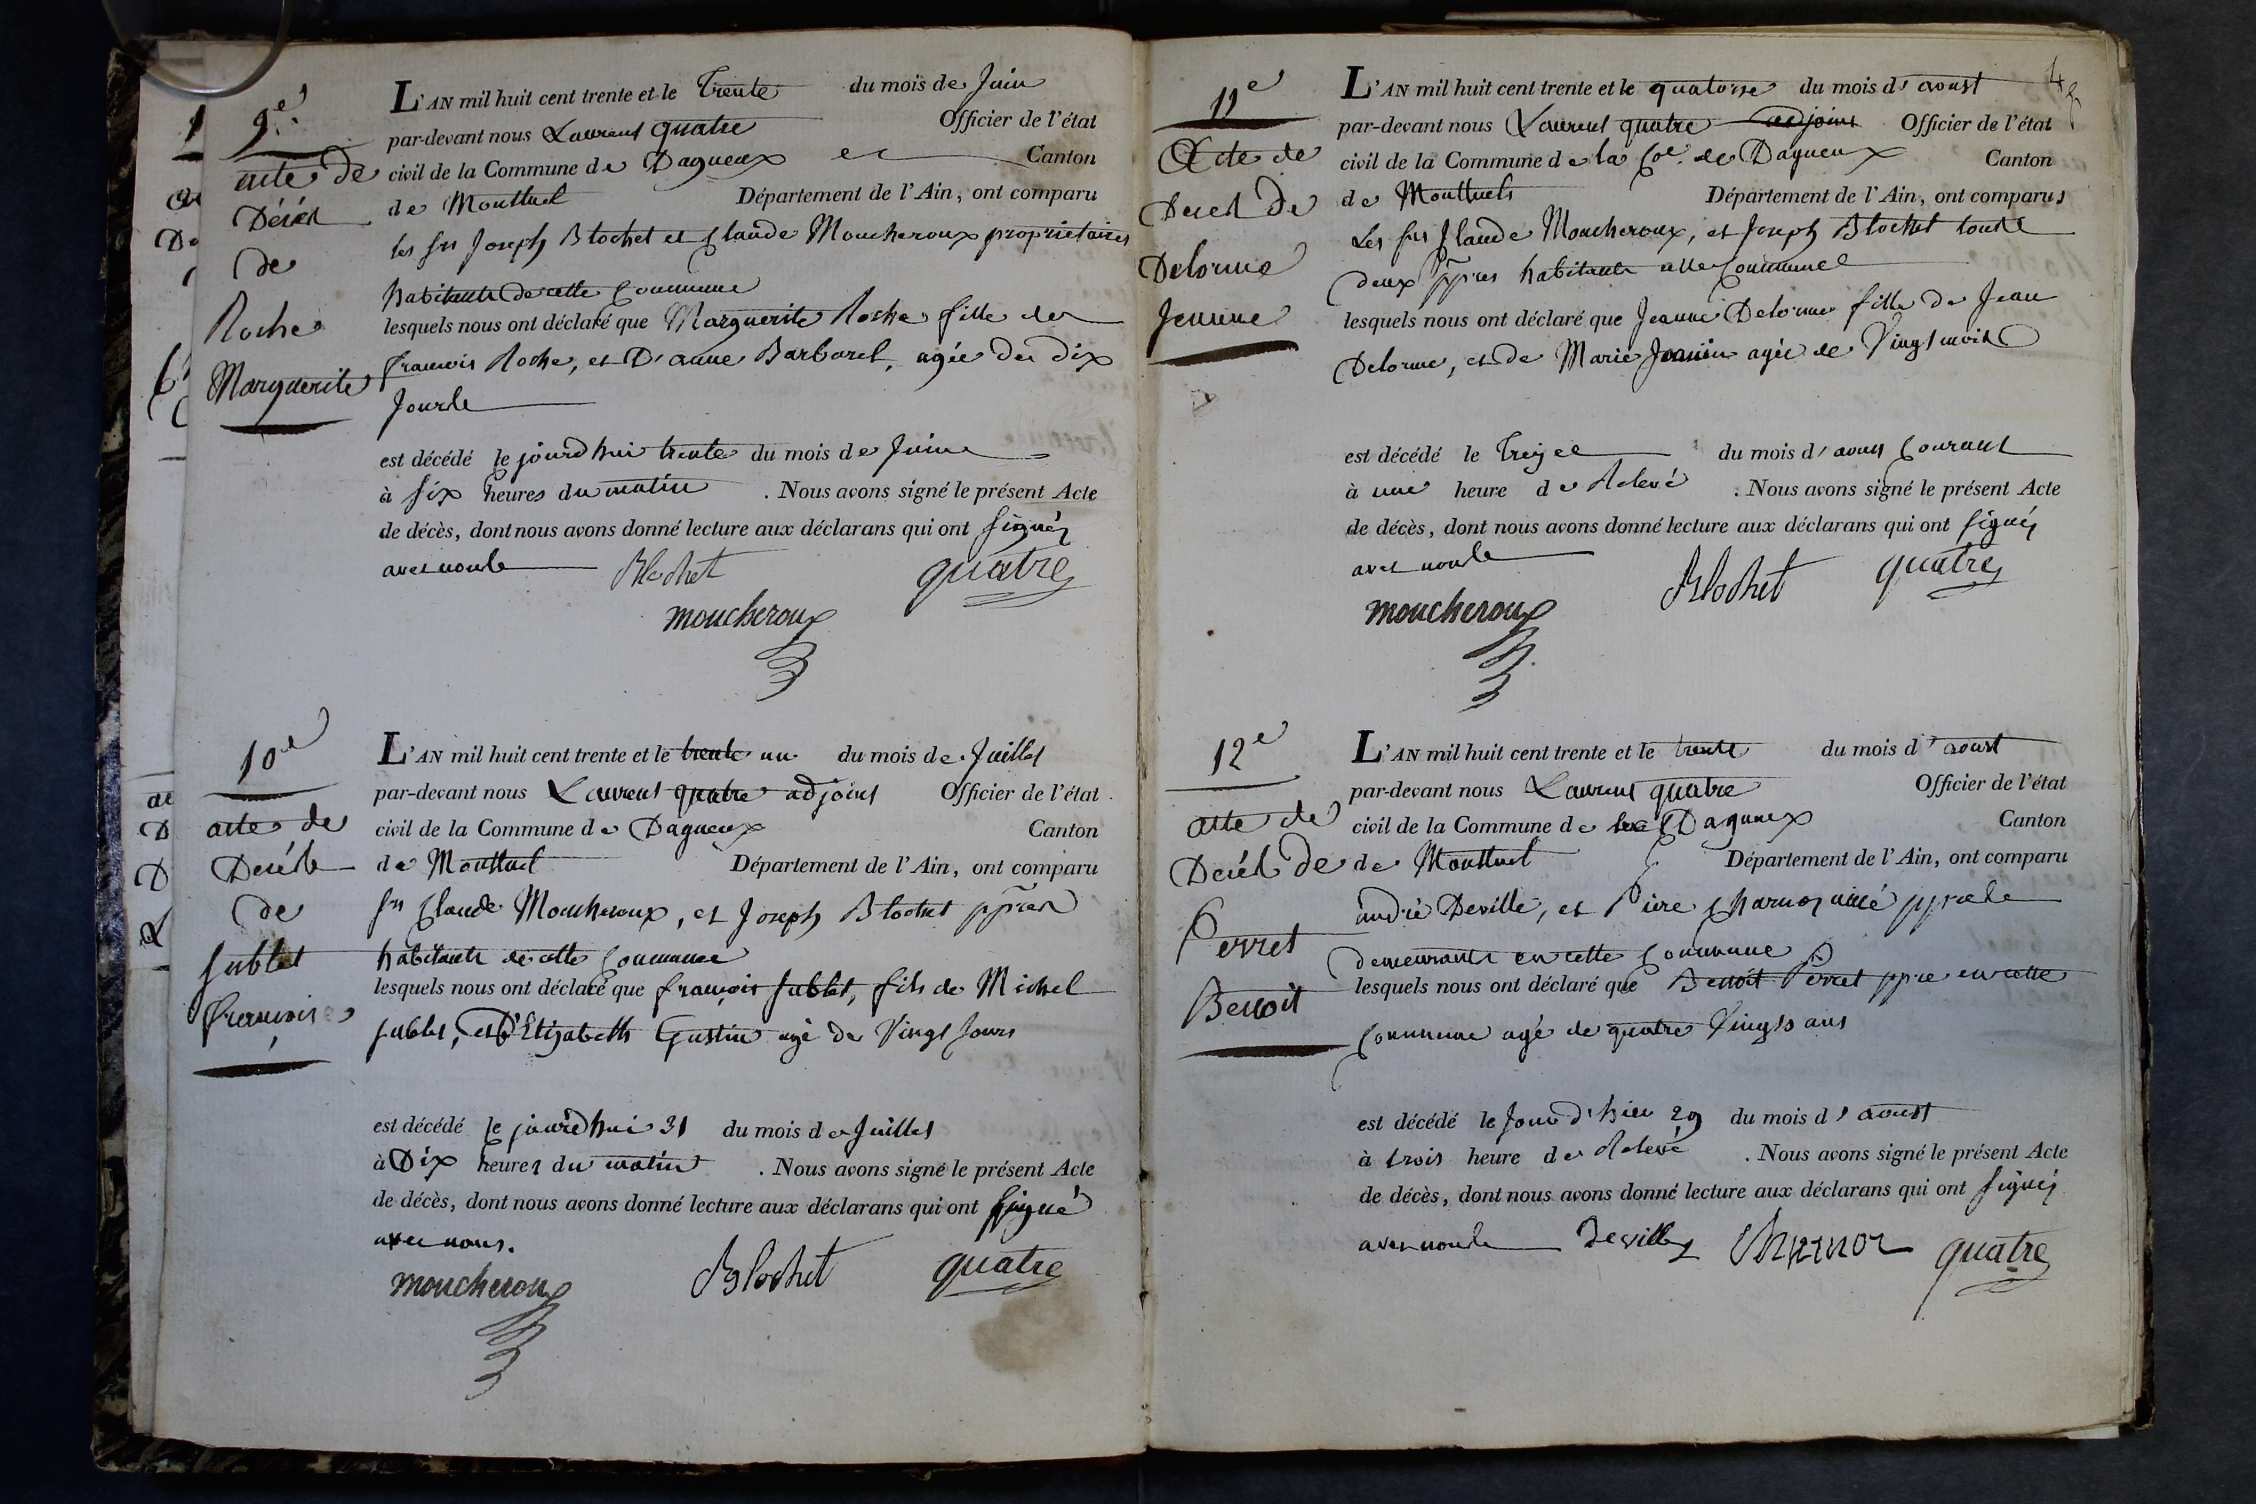 9e
acte de
Décès
de
Roche
Marguerite
L'AN mil huit cent trente et le Trente du mois de Juin
par-devant nous Laurent quatre Officier de l'état
civil de la Commune de Dagneux Canton
de Montluel Département de l'Ain, ont comparu
les srs Joseph Blochet et Claude Moucheroux propriétaires
habitants de cette Commune
lesquels nous ont déclaré que Marguerite Roche fille de
francois Roche, et D'anne Barbaret, agée de dix
Jours
est décédé le jourdhui trente du mois de Juin
à six heures du matin . Nous avons signé le présent Acte
de décès, dont nous avons donné lecture aux déclarans qui ont signés
avec nous
Blochet quatre
moucheroux
10e
acte de
Décès
de
Sublet
francois
L'AN mil huit cent trente et le trente un du mois de Juillet
par-devant nous Laurent quatre adjoint Officier de l'état
civil de la Commune de Dagneux Canton
de Montluel Département de l'Ain, ont comparu
srs Claude Moucheroux, et Joseph Blochet ppres
habitants de cette Commune
lesquels nous ont déclaré que francois Sublet, fils de Michel
Sublet, et D'Elizabeth Gustin agé de Vingt Jours
est décédé le jourdhui 31 du mois de Juillet
à Dix heures du matin . Nous avons signé le présent Acte
de décès, dont nous avons donné lecture aux déclarans qui ont signé
avec nous.
moucheroux Blochet quatre
11e
Acte de
Deces De
Delorme
Jeanne
L'AN mil huit cent trente et le quatorse du mois d'aoust
par-devant nous Laurent quatre adjoint Officier de l'état
civil de la Commune de la Coe. de Dagneux Canton
de Montluels Département de l'Ain, ont comparus
Les srs Claude Moucheroux, et Joseph Blochet tous
deux ppres habitants Commune
lesquels nous ont déclaré que Jeanne Delorme fille de Jean
Delorme, et de Marie agée de Vingt mois
est décédé le Treize du mois d'aout Courant
à une heure de Relevé . Nous avons signé le présent Acte
de décès, dont nous avons donné lecture aux déclarans qui ont signés
avec nous
moucheroux Blochet quatre
12e
acte de
Décès de
Perret
Benoit
L'AN mil huit cent trente et le trente du mois d'aoust
par-devant nous Laurent quatre Officier de l'état
civil de la Commune de Dagneux Canton
de Montluel Département de l'Ain, ont comparu
andré Deville, et Piere
demeurants en cette Commune
lesquels nous ont déclaré que Benoit Perret ppre en cette
Commune agé de quatre Vingts ans
est décédé le Jour d'hier 29 du mois d'aoust
à trois heure de Relevé . Nous avons signé le présent Acte
de décès, dont nous avons donné lecture aux déclarans qui ont signés
avec nous Deville quatre